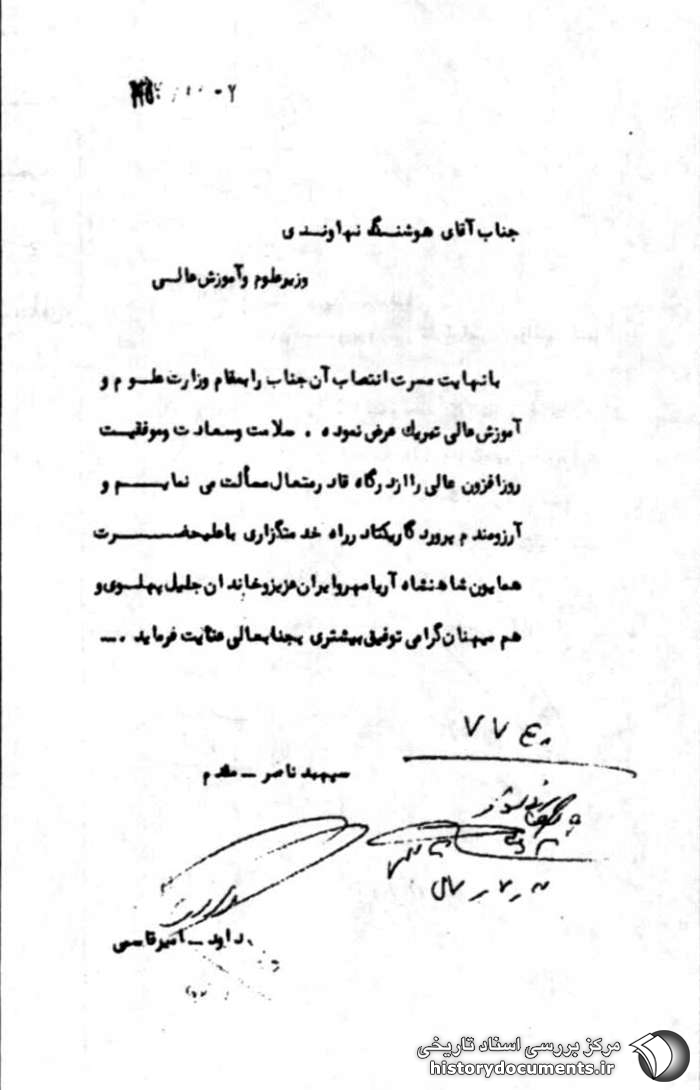 جناب آقای هوشنگ نهاوندی
وزیر علوم و آموزش عالی
با نهایت مسرت انتصاب آن جناب را بمقام وزارت علوم و
آموزش عالی تبریک عرض نموده . سلامت و سعادت و موفقیت
روزافزون عالی را از درگاه قادر متعال مسألت می نمایم و
آرزومندم پروردگار یکتا در راه خدمتگزاری با علیحضرت
همایون شاهنشاه آریامهر و ایران عزیز و خاندان جلیل پهلوی و
هم میهنان گرامی توفیق بیشتری بجنابعالی عنایت فرماید . ــ
سپهبد ناصر ــ مقدم
داود ــ امیرقاسمی
مرکز بررسی اسناد تاریخی
historydocuments.ir